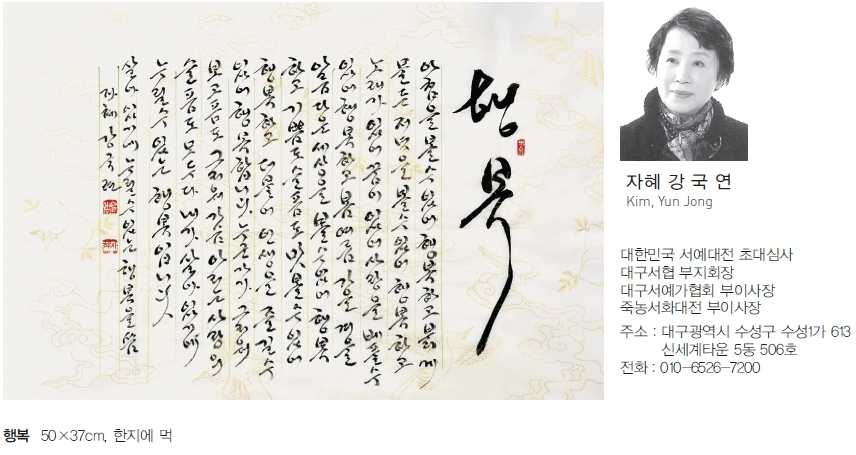 행복
아침을 볼 수 있어 행복하고 붉게
물든 저녁을 볼 수 있어 행복하고
노래가 있어 꿈이 있어 사랑을 베풀 수
있어 행복하고 봄 여름 가을 겨울
아름다운 세상을 볼 수 있어 행복
하고 기쁨도 슬픔도 맛볼 수 있어
행복하고 더불어 인생을 즐길 수
있어 행복합니다. 누군가가 그리워
보고픔도 그리워 가슴 아린 사랑의
슬픔도 모두 다 내가 살아 있기에
누릴 수 있는 행복입니다
살아 있기에 누릴 수 있는 행복을 씀
자혜 강국연
자혜 강 국 연
Kim, Yun Jong
대한민국 서예대전 초대심사
대구서협 부지회장
대구서예가협회 부이사장
죽농서화대전 부이사장
주소 : 대구광역시 수성구 수성1가 613
신세계타운 5동 506호
전화 : 010-6526-7200
행복 50×37cm, 한지에 먹